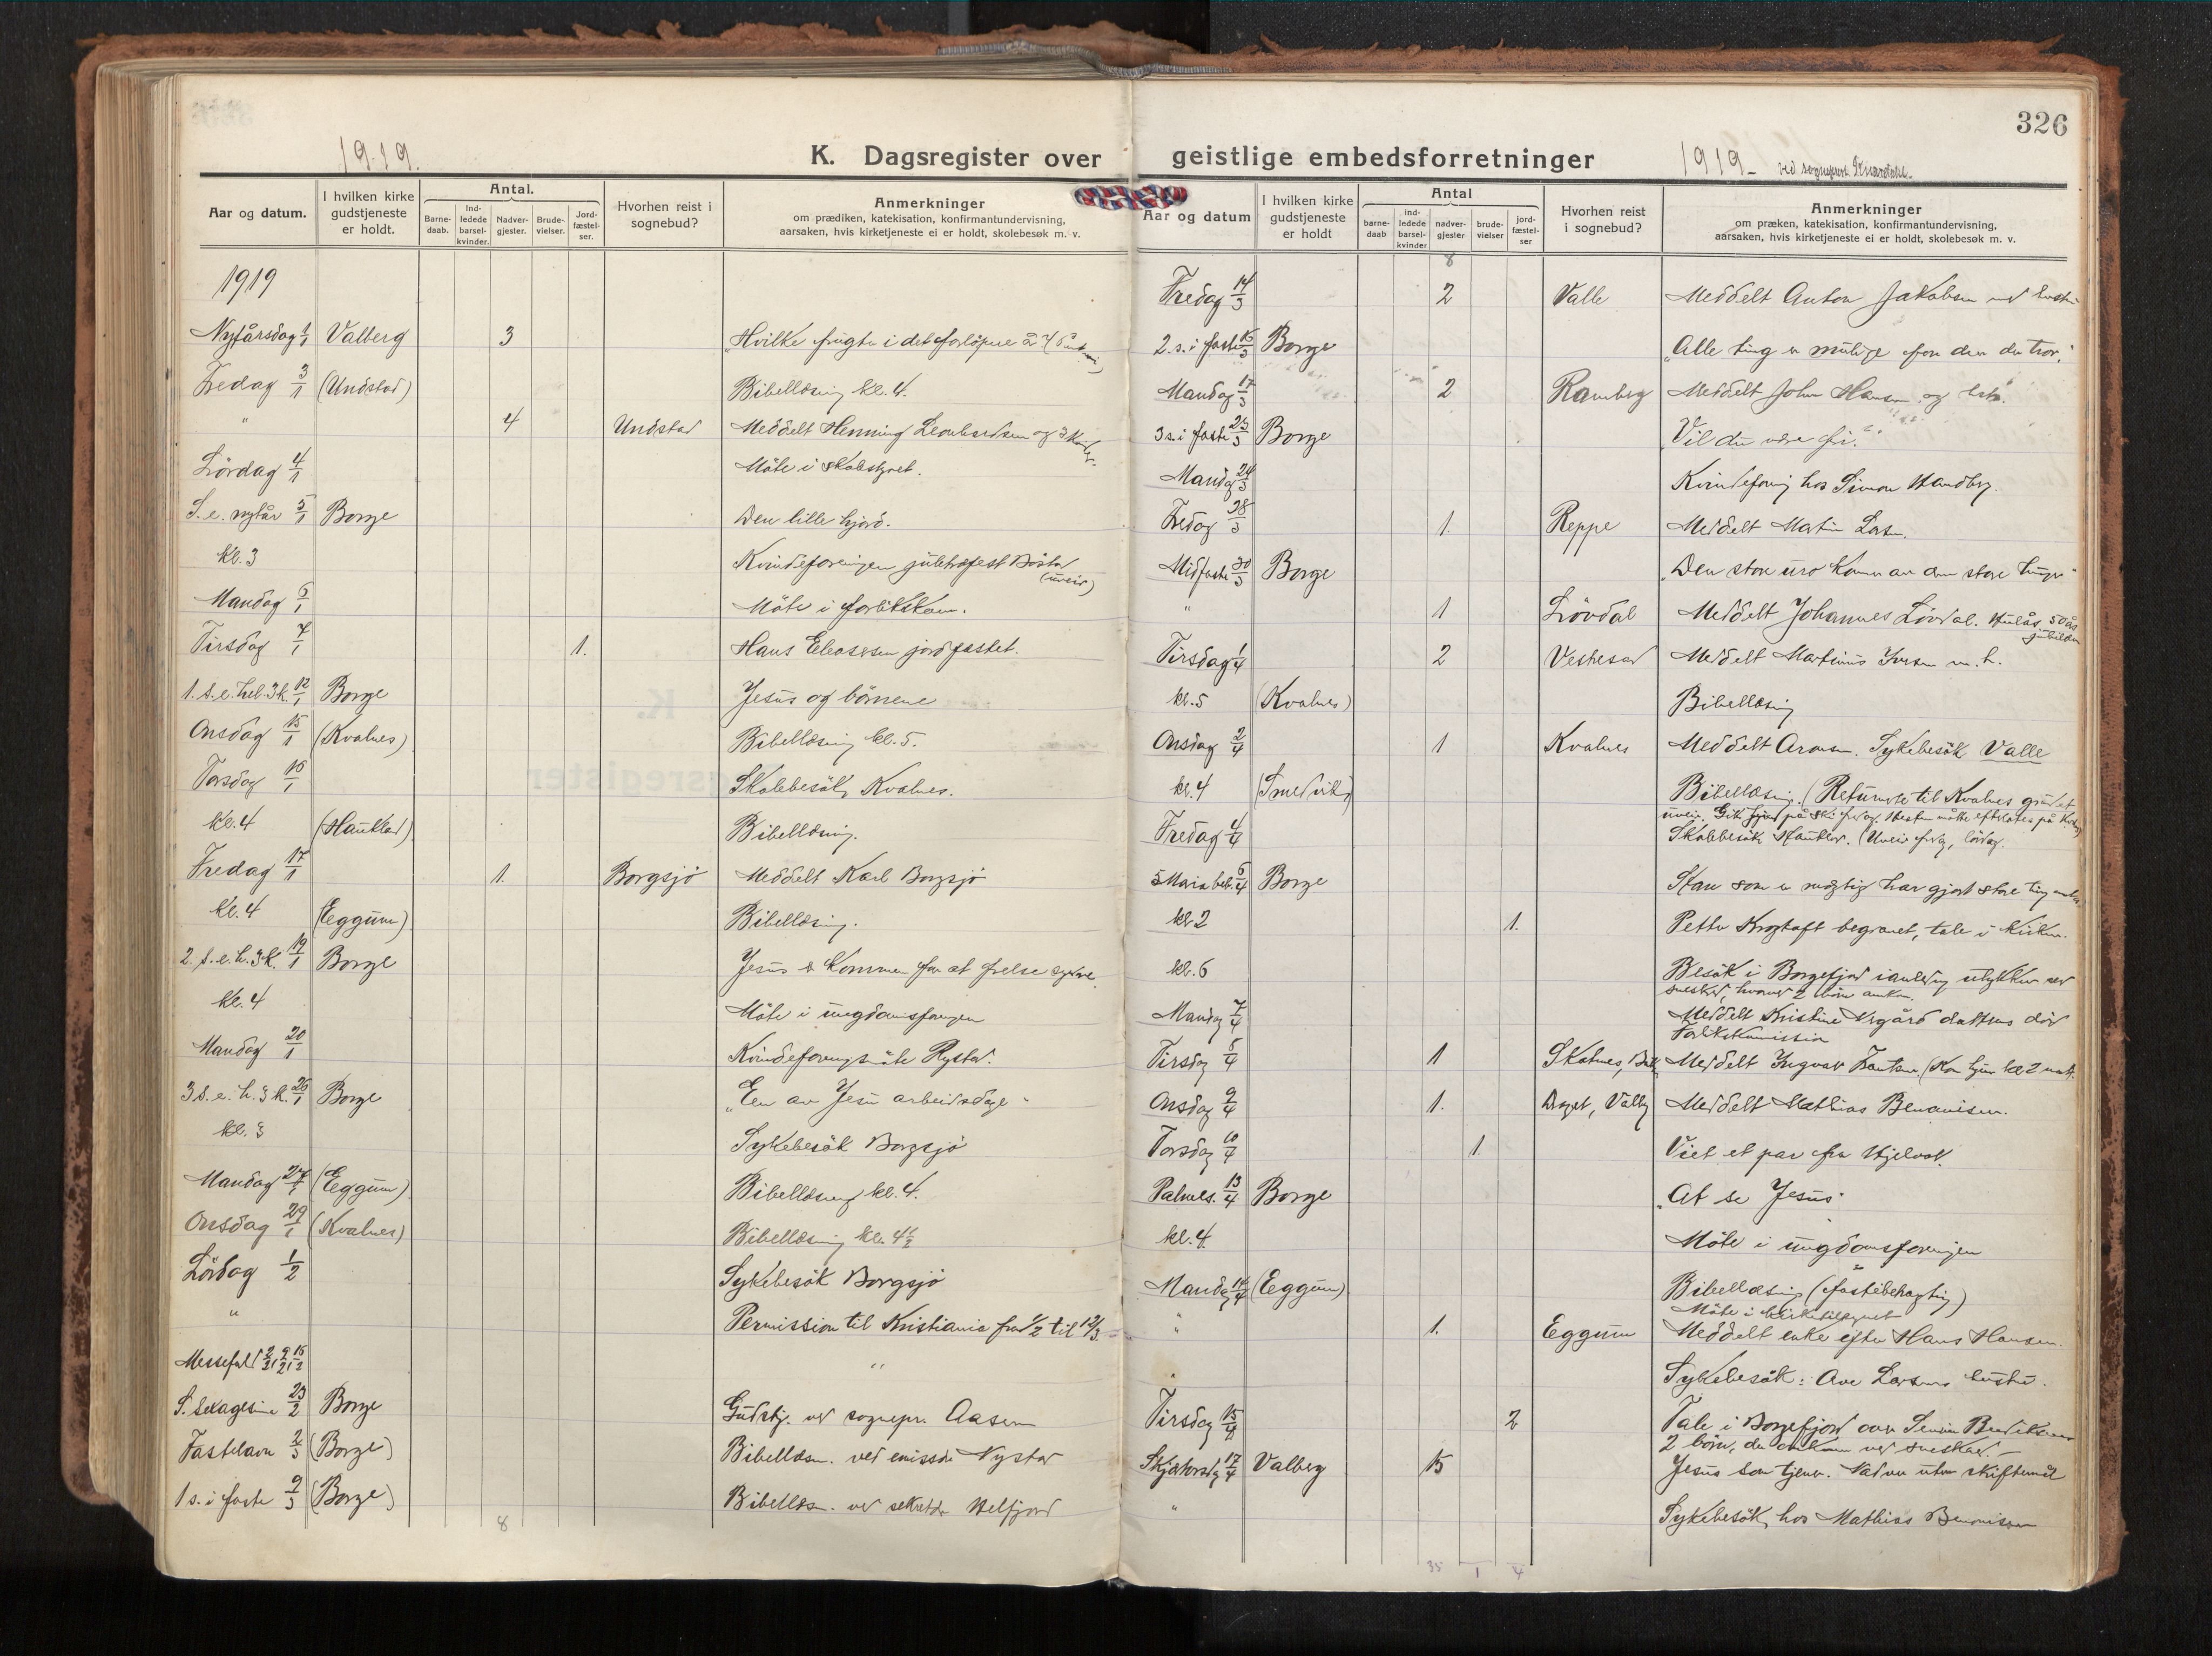 326
1919.
K. Dagsregister over geistlige embedsforretninger
1919 ved sogneprest
Aar og datum.
I hvilken kirke gudstjeneste er holdt.
Antal.
Barne-daab.
Ind-ledede barsel-kvinder.
Nadver-gjester.
Brude-vielser.
Jord-fæstel-ser.
Hvorhen reist i sognebud?
Anmerkninger
om prædiken, katekisation, konfirmantundervisning,
aarsaken, hvis kirketjeneste ei er holdt, skolebesøk m. v.
1919
Nyfårsdag 1/1 Valberg 3 Hvilke frugter i det forløpne år
Fredag 3/1 (Unstad) Bibellæsning kl. 4.
" 4 Unstad Meddelt Henning Leonhardsen og 3
Lördag 4/1 Möte i skolestyret.
S. e. nytår 5/1 Borge Den lille hjord.
kl. 3 Kvindeforeningen juletræfest Bøstad
(uveir)
Mandag 6/1 Möte i forlikskom.
Tirsdag 7/1 1. Hans Eliassen jordfæstet.
1. s. e. hel. 3 k. 12/1 Borge Jesus og börnene
Onsdag 15/1 (Kvalnes) Bibellæsning kl. 5.
Torsdag 16/1 Skolebesök, Kvalnes.
kl. 4 (Haukland) Bibellæsning.
Fredag 17/1 1. Borgsjö Meddelt Karl Borgsjö
kl. 4 (Eggum) Bibellæsning.
2. s. e. h. 3 k. 19/1 Borge Jesus er kommen for at frelse syndere.
kl. 4 Möte i ungdomsforeningen
Mandag 20/1 Kvindeforeningsmöte Rystad.
3 s. e. h. 3 k. 26/1 Borge "Een av Jesu arbeidsdage"
kl. 3 Sykebesök Borgsjö
Mandag 27/1 (Eggum) Bibellæsning kl. 4.
Onsdag 29/1 (Kvalnes) Bibellæsning kl. 4½
Lördag 1/2 Sykebesök Borgsjö
" Permission til Kristiania fra 1/2 til 12/3
Messefald 2/2, 9/2, 16/2 "
S. sexagesima 23/2 Borge Gudstj. ved sognepr. Aasen
Fastelavn 2/3 (Borge) Bibellæsn. ved emissær Nystad
1 s. i faste 9/3 (Borge) Bibellæsn. ved sekretær
8
Aar og datum
I hvilken kirke gudstjeneste er holdt
Antal
barne-daab
ind-ledede barsel-kvinder
nadver-gjester
brude-vielser
jord-fæstel-ser
Hvorhen reist i sognebud?
Anmerkninger
om præken, katekisation, konfirmantundervisning,
aarsaken, hvis kirketjeneste ei er holdt, skolebesøk m. v.
8
Fredag 14/3 2 Valle Meddelt Anton Jakobsen med hustru
2. s. i faste 16/3 Borge "Alle ting er mulige for den der tror."
Mandag 17/3 2 Ramberg Meddelt John Hansen og hstr.
3 s. i faste 23/3 Borge "Vil du være fri."
Mandag 24/3 Kvindeforening hos Simon Handberg.
Fredag 28/3 1. Reppe Meddelt Martin Larsen.
Midfaste 30/3 Borge "Den store uro kommer av den store
" 1 Lövdal Meddelt Johannes Lövdal. 50 års
jubilæum
Tirsdag 1/4 2 Meddelt Martinus Iversen m. h.
kl. 5 (Kvalnes) Bibellæsning
Onsdag 2/4 1 Kvalnes Meddelt Aronsen. Sykebesök Valle
kl. 4 (Smedvik) Bibellæsning. (Returnerte til Kvalnes grundet
uveir. Gik på ski fredag. Hesten måtte efterlates på Kvalnes)
Fredag 4/4 Skolebesök Haukland. (Uveir fredag, lördag.
5 Maria beb. 6/4 Borge Han som er mægtig har gjort store ting
kl 2 1. Petter begravet, tale i kirken.
kl. 6 Besök i Borgefjord i anledning ulykken ved
sneskred, hvorved 2 börn omkom.
Mandag 7/4 Meddelt Kristine datters död
Forlikskommission
Tirsdag 8/4 1 Skotnes, Meddelt Ingvar (Kom hjem kl 2 natt.
Onsdag 9/4 1. Valberg Meddelt Mathias Benonisen.
Torsdag 10/4 1. Viet et par fra
Palmes. 13/4 Borge "At se Jesus"
kl. 4 Möte i ungdomsforeningen
Mandag 14/4 (Eggum) Bibellæsning
Möte i kirketilsynet
" 1. Eggum Meddelt enke efter Hans Hansen.
" Sykebesök: Ove Larsens hustru.
Tirsdag 15/4 2 Tale i Borgefjord over
2 börn, der omkom ved sneskred.
Skjærtorsdag 17/4 Valberg 15 Jesus som tjener. Nadver uten skriftemål
" Sykebesök hos Mathias Benonisen
35 1 4